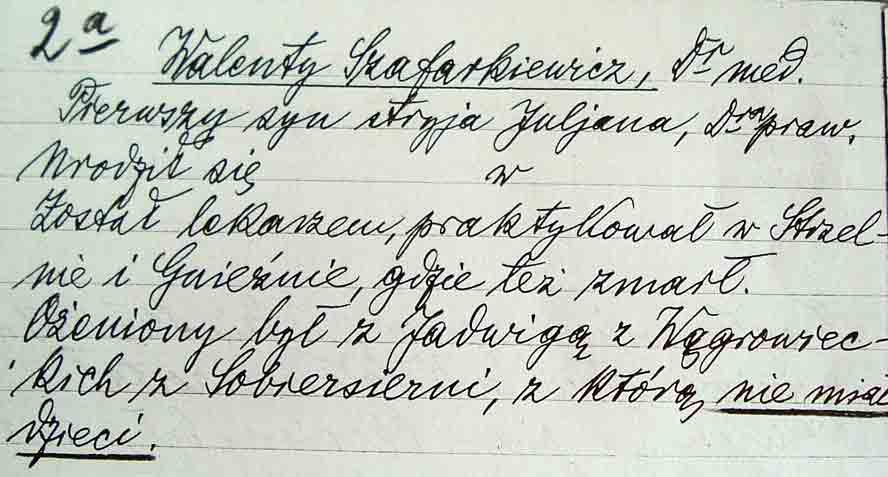 2a
Walenty Szafarkiewicz, Dr med.
Pierwszy syn stryja Juljana, Dra praw.
Urodził się w
Został lekarzem, praktykował w Strzel-
nie i Gnieźnie, gdzie też zmarł.
Ożeniony był z Jadwigą z Wągrowiec-
kich z Sobiersierni, z którą nie miał
dzieci.